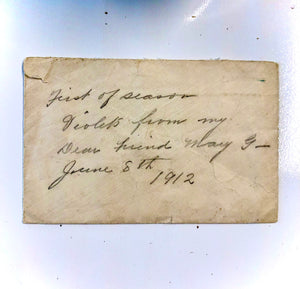 First of season
Violets from my
Dear friend May G-
June 8th
1912